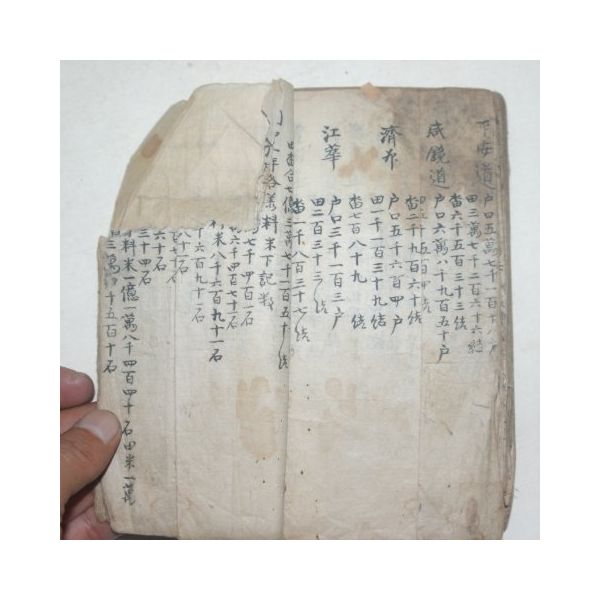 海道 戶口五萬七千一百十戶
田三萬七千二百六十六結
畓六千五百三十三結
咸鏡道 戶口六萬八千九百五十戶
畓二千九百六十結
濟州 戶口五千六百四戶
田一千一百三十九結
畓七百八十九結
江華 戶口三千一百三戶
田二百三十三結
畓一千八百三十七結
田畓合七億三萬七千一百五十結
年各樣料米下記數
七千四百一石
六千四百七十一石
米八千六百九十一石
六百九十一石
八十一石
六十石
三十四石
料米一億一萬八千四百四十石田米一萬
三萬 千五百十石